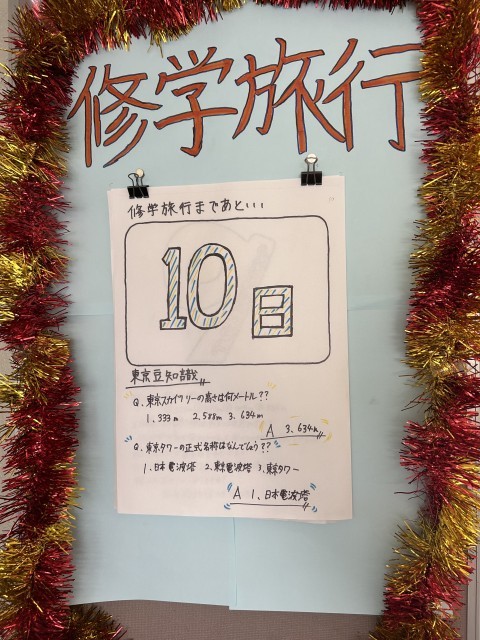 修学旅行
修学旅行まであと...
10日
東京豆知識
Q. 東京スカイツリーの高さは何メートル??
1. 333m 2. 588m 3. 634m
A 3. 634m
Q. 東京タワーの正式名称はなんでしょう??
1. 日本電波塔 2. 東京電波塔 3. 東京タワー
A 1. 日本電波塔